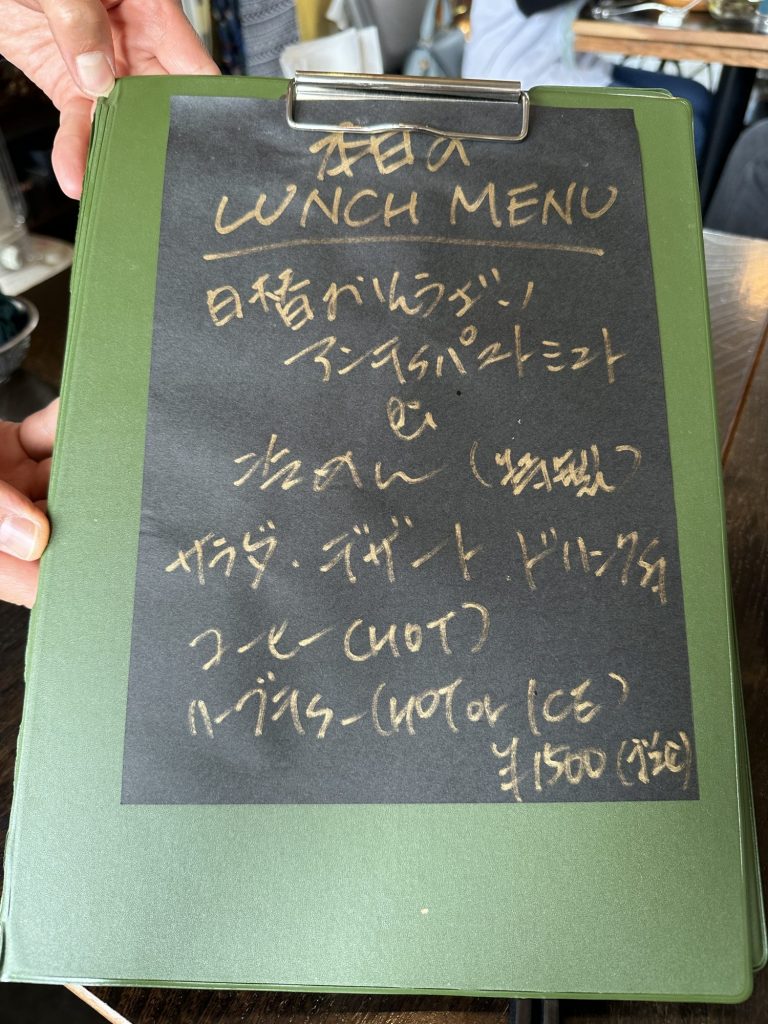 本日の
LUNCH MENU
日替
アンティパストミスト
(特製)
サラダ・デザート ドリンク付
コーヒー(HOT)
ハーブティー(HOT or ICE)
¥1500(税込)